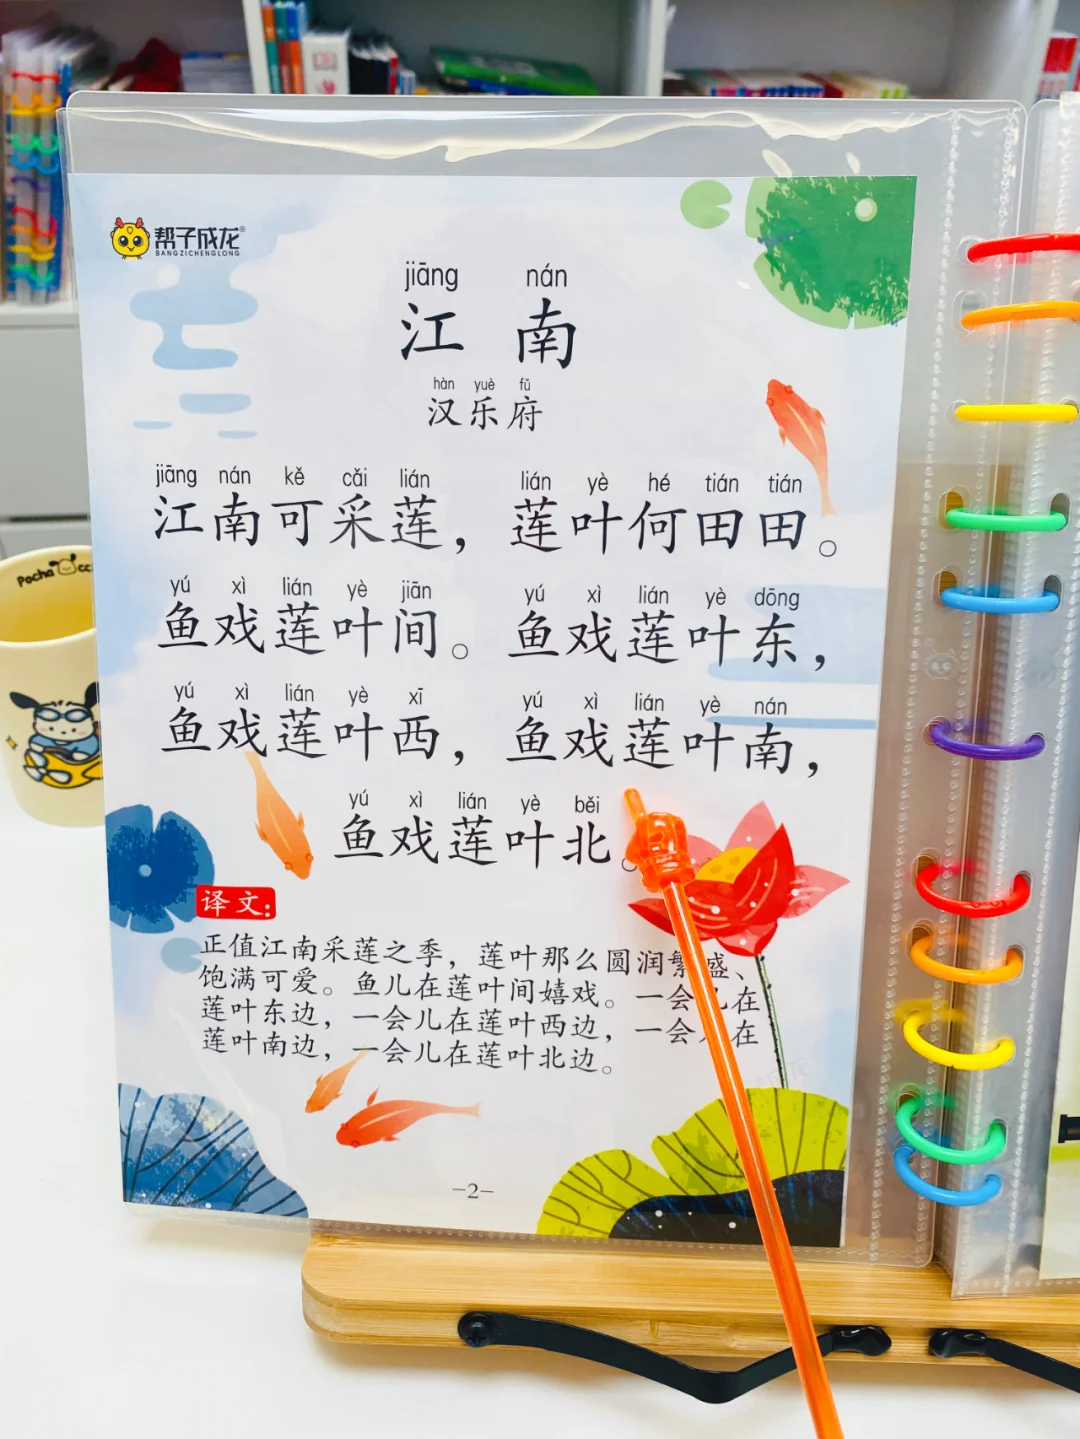 帮子成龙®
BANGZICHENGLONG
jiāng nán
江南
hàn yuè fǔ
汉乐府
jiāng nán kě cǎi lián lián yè hé tián tián
江南可采莲，莲叶何田田。
yú xì lián yè jiān yú xì lián yè dōng
鱼戏莲叶间。鱼戏莲叶东，
yú xì lián yè xī yú xì lián yè nán
鱼戏莲叶西，鱼戏莲叶南，
yú xì lián yè běi
鱼戏莲叶北。
译文：
正值江南采莲之季，莲叶那么圆润繁盛、
饱满可爱。鱼儿在莲叶间嬉戏。一会儿在
莲叶东边，一会儿在莲叶西边，一会儿在
莲叶南边，一会儿在莲叶北边。
-2-
Pochacc